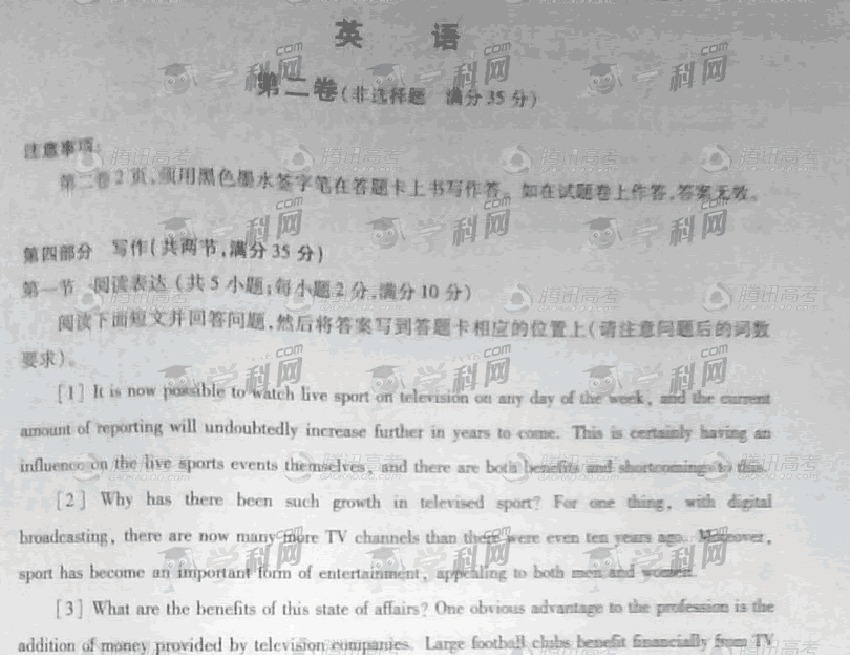 英 语
第二卷(非选择题 满分35分)
注意事项:
第二卷2页,须用黑色墨水签字笔在答题卡上书写作答。如在试题卷上作答,答案无效。
第四部分 写作(共两节,满分35分)
第一节 阅读表达(共5小题;每小题2分,满分10分)
阅读下面短文并回答问题,然后将答案写到答题卡相应的位置上(请注意问题后的词数
要求)。
[1] It is now possible to watch live sport on television on any day of the week, and the current
amount of reporting will undoubtedly increase further in years to come. This is certainly having an
influence on the live sports events themselves, and there are both benefits and shortcomings to this.
[2] Why has there been such growth in televised sport? For one thing, with digital
broadcasting, there are now many more TV channels than there were even ten years ago. Moreover,
sport has become an important form of entertainment, appealing to both men and women.
[3] What are the benefits of this state of affairs? One obvious advantage to the profession is the
addition of money provided by television companies. Large football clubs benefit financially from TV